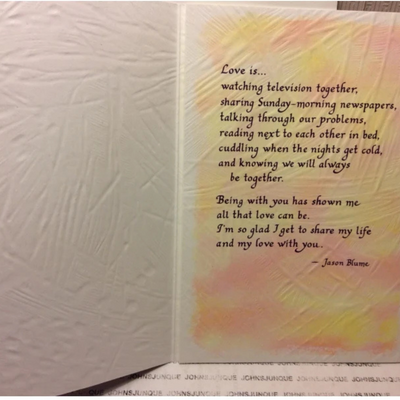 Love is...
watching television together,
sharing Sunday-morning newspapers,
talking through our problems,
reading next to each other in bed,
cuddling when the nights get cold,
and knowing we will always
be together.
Being with you has shown me
all that love can be.
I'm so glad I get to share my life
and my love with you..
— Jason Blume
JOHNSJUNQUE JOHNSJUNQUE JOHNSJUNQUE JOHNSJUNQUE